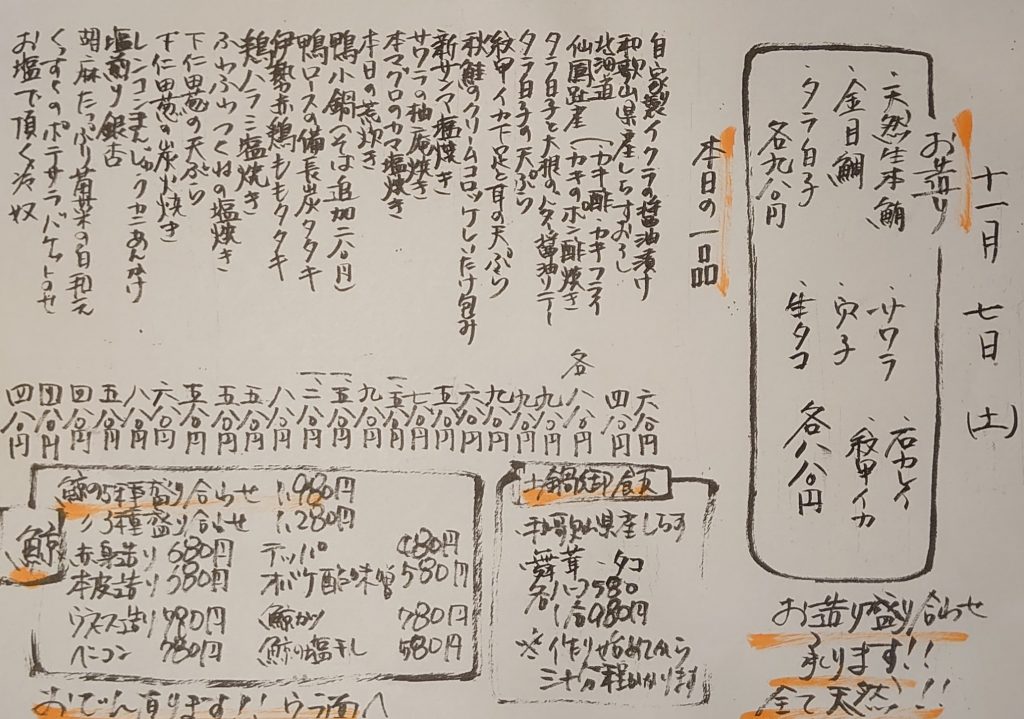 十一月 七日 (土)
お造り
・天然生本鮪
・金目鯛
・タラ白子
各九八〇円
・サワラ
・穴子
・生タコ
・石カレイ
・紋甲イカ
各八八〇円
お造り盛り合わせ
承ります!!
全て天然!!
本日の一品
自家製イクラの醤油漬け 六八〇円
和歌山県産しらすおろし 四八〇円
北海道 (カキ酢 カキフライ
仙鳳趾産 (カキのポン酢焼き 各 八八〇円
タラ白子と大根のバター醤油ソテー 九八〇円
タラ白子の天ぷら 九八〇円
紋甲イカ下足と耳の天ぷら
秋鮭のクリームコロッケしいたけ包み
新サンマ塩焼き
サワラの柚庵焼き
本マグロのカマ塩焼き
本日の荒炊き
鴨小鍋(そば追加二八〇円)
鴨ロースの備長炭タタキ
伊勢赤鶏ももタタキ
鶏ハラミ塩焼き
ふわふわつくねの塩焼き
下仁田葱の天ぷら
下仁田葱の炭火焼き
レンコンまんじゅうカニあんかけ
塩煎り銀杏
胡麻たっぷり菊菜の白和え
くんすぐのポテサラバケット乗せ
お塩で頂く冷奴 四八〇円
土鍋御飯
和歌山県産しらす
舞茸 タコ
各ハーフ580
1合980円
※作り始めてから
三十分程かかります
鯨
鯨の5種盛り合わせ 1,980円
〃 3種盛り合わせ 1,280円
赤身造り 680円 テッパ 480円
本皮造り 580円 オバケ酢味噌 580円
ウネス造り 780円 鯨かつ 780円
ベーコン 780円 鯨の塩干し 580円
おでん有ります!! ウラ面へ